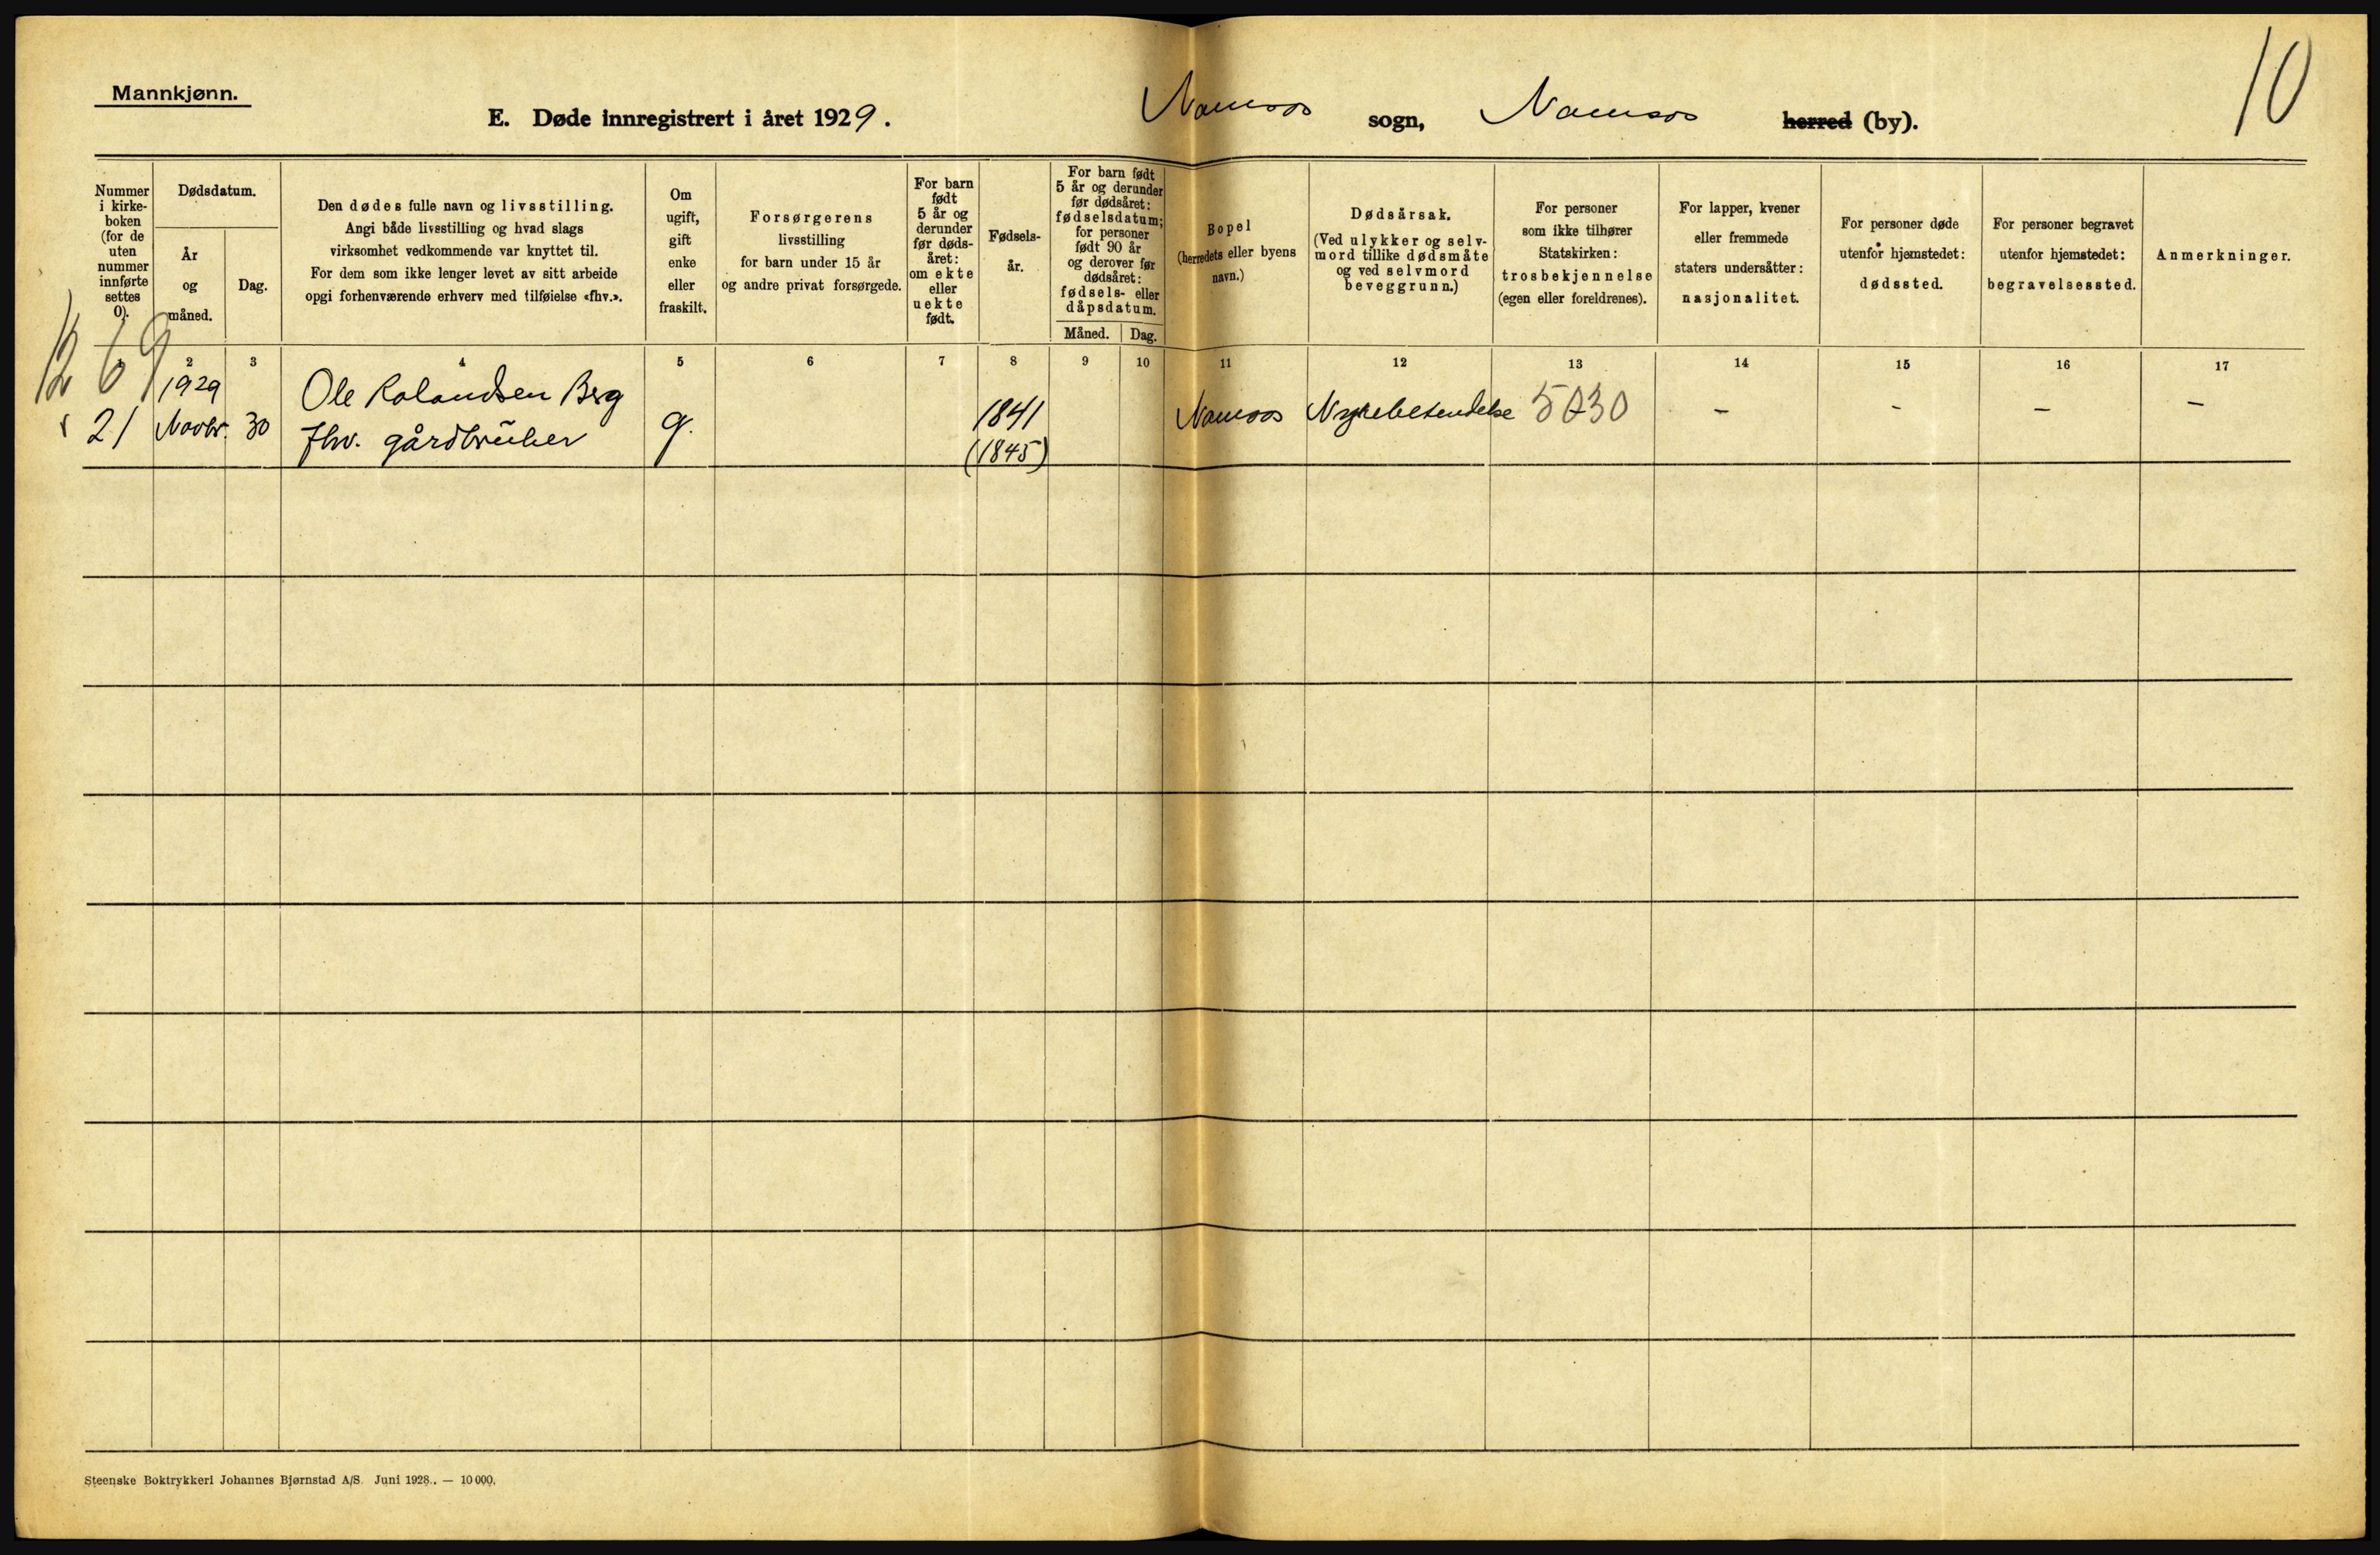 Mannkjønn.
10
E. Døde innregistrert i året 1929. Namsos sogn, Namsos herred (by).
Nummer
i kirke-
boken
(for de
uten
nummer
innførte
settes
0).
Dødsdatum.
År
og
måned.
Dag.
Den dødes fulle navn og livsstilling.
Angi både livsstilling og hvad slags
virksomhet vedkommende var knyttet til.
For dem som ikke lenger levet av sitt arbeide
opgi forhenværende erhverv med tilføielse «fhv.».
Om
ugift,
gift
enke
eller
fraskilt.
Forsørgerens
livsstilling
for barn under 15 år
og andre privat forsørgede.
For barn
født
5 år og
derunder
før døds-
året:
om ekte
eller
uekte
født.
Fødsels-
år.
For barn født
5 år og derunder
før dødsåret:
fødselsdatum;
for personer
født 90 år
og derover før
dødsåret:
fødsels- eller
dåpsdatum.
Måned. Dag.
Bopel
(herredets eller byens
navn.)
Dødsårsak.
(Ved ulykker og selv-
mord tillike dødsmåte
og ved selvmord
beveggrunn.)
For personer
som ikke tilhører
Statskirken:
trosbekjennelse
(egen eller foreldrenes).
For lapper, kvener
eller fremmede
staters undersåtter:
nasjonalitet.
For personer døde
utenfor hjemstedet:
dødssted.
For personer begravet
utenfor hjemstedet:
begravelsessted.
Anmerkninger.
2 3 4 5 6 7 8 9 10 11 12 13 14 15 16 17
1929 Ole Rolandsen Berg
21 Novbr. 30 fhv. gårdbruker g. 1841 Namsos Nyrebetendelse 5030 - - - -
(1845)
Steenske Boktrykkeri Johannes Bjørnstad A/S. Juni 1928.. — 10 000.